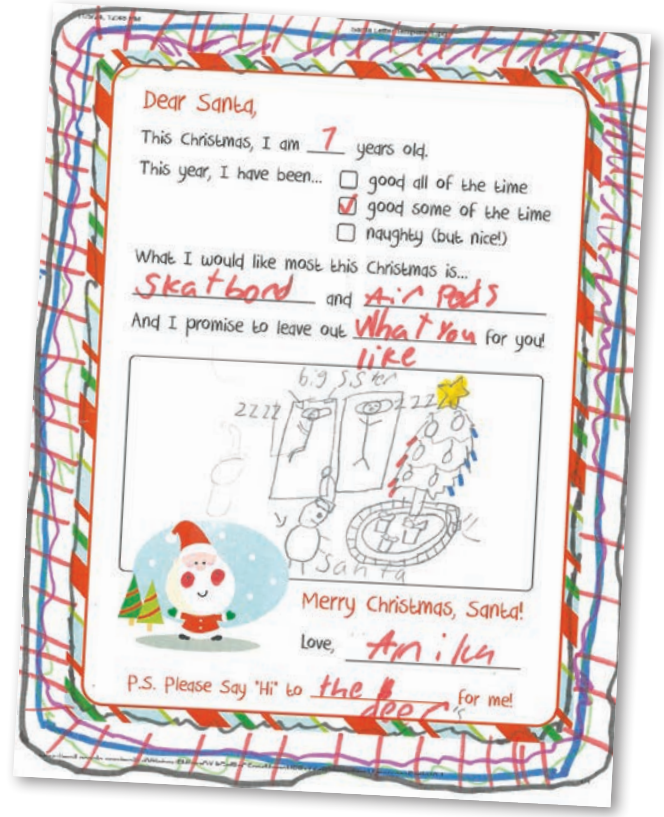 Dear Santa,
This Christmas, I am 7 years old.
This year, I have been...
good all of the time
good some of the time
naughty (but nice!)
What I would like most this Christmas is...
Skatbord and Air Pods
And I promise to leave out What You for you!
like
big sister
zzzz zzzz
Santa
Merry Christmas, Santa!
Love, Anika
P.S. Please Say "Hi" to the for me!
deer's